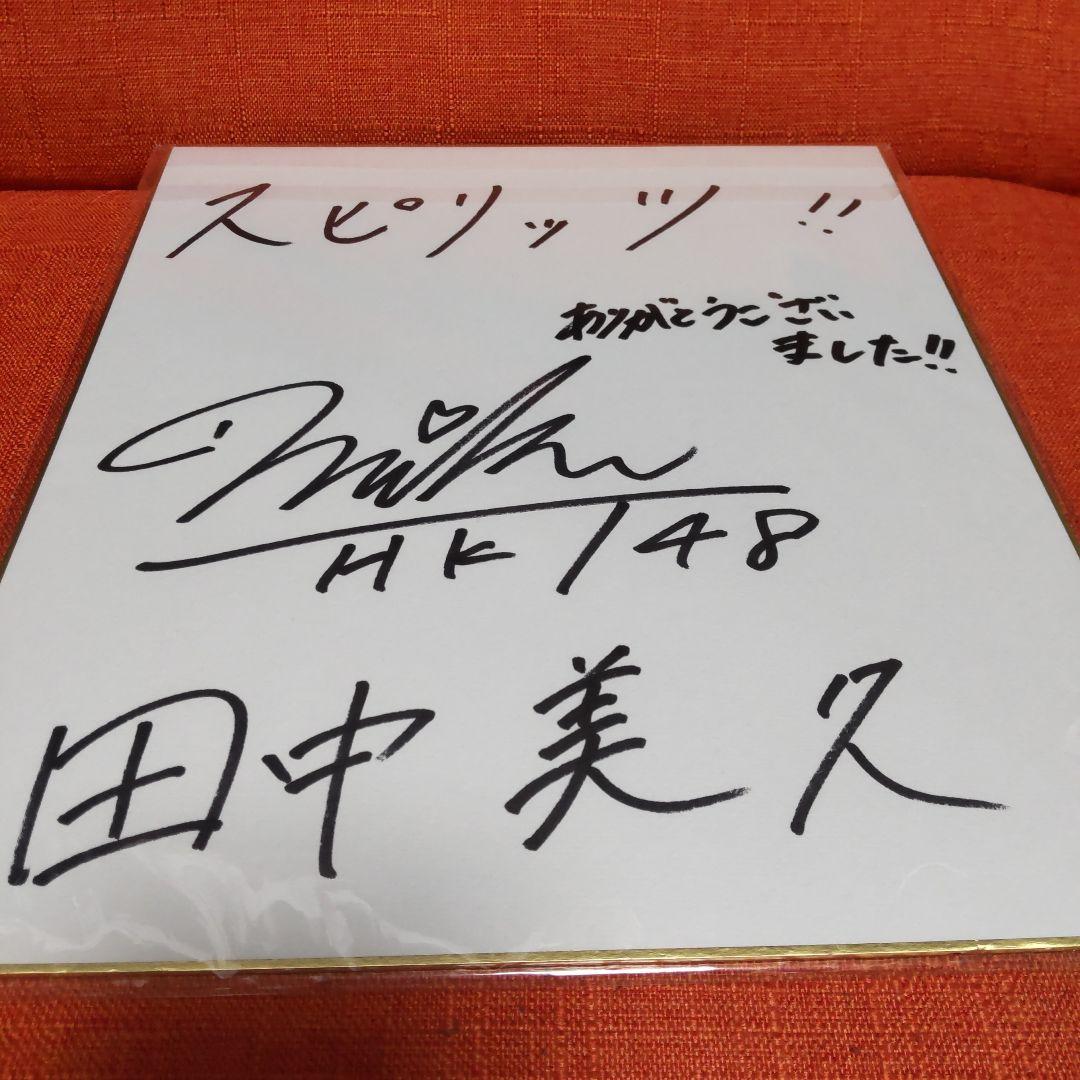 スピリッツ!!
ありがとうござい
ました!!
Miku
HKT48
田中美久